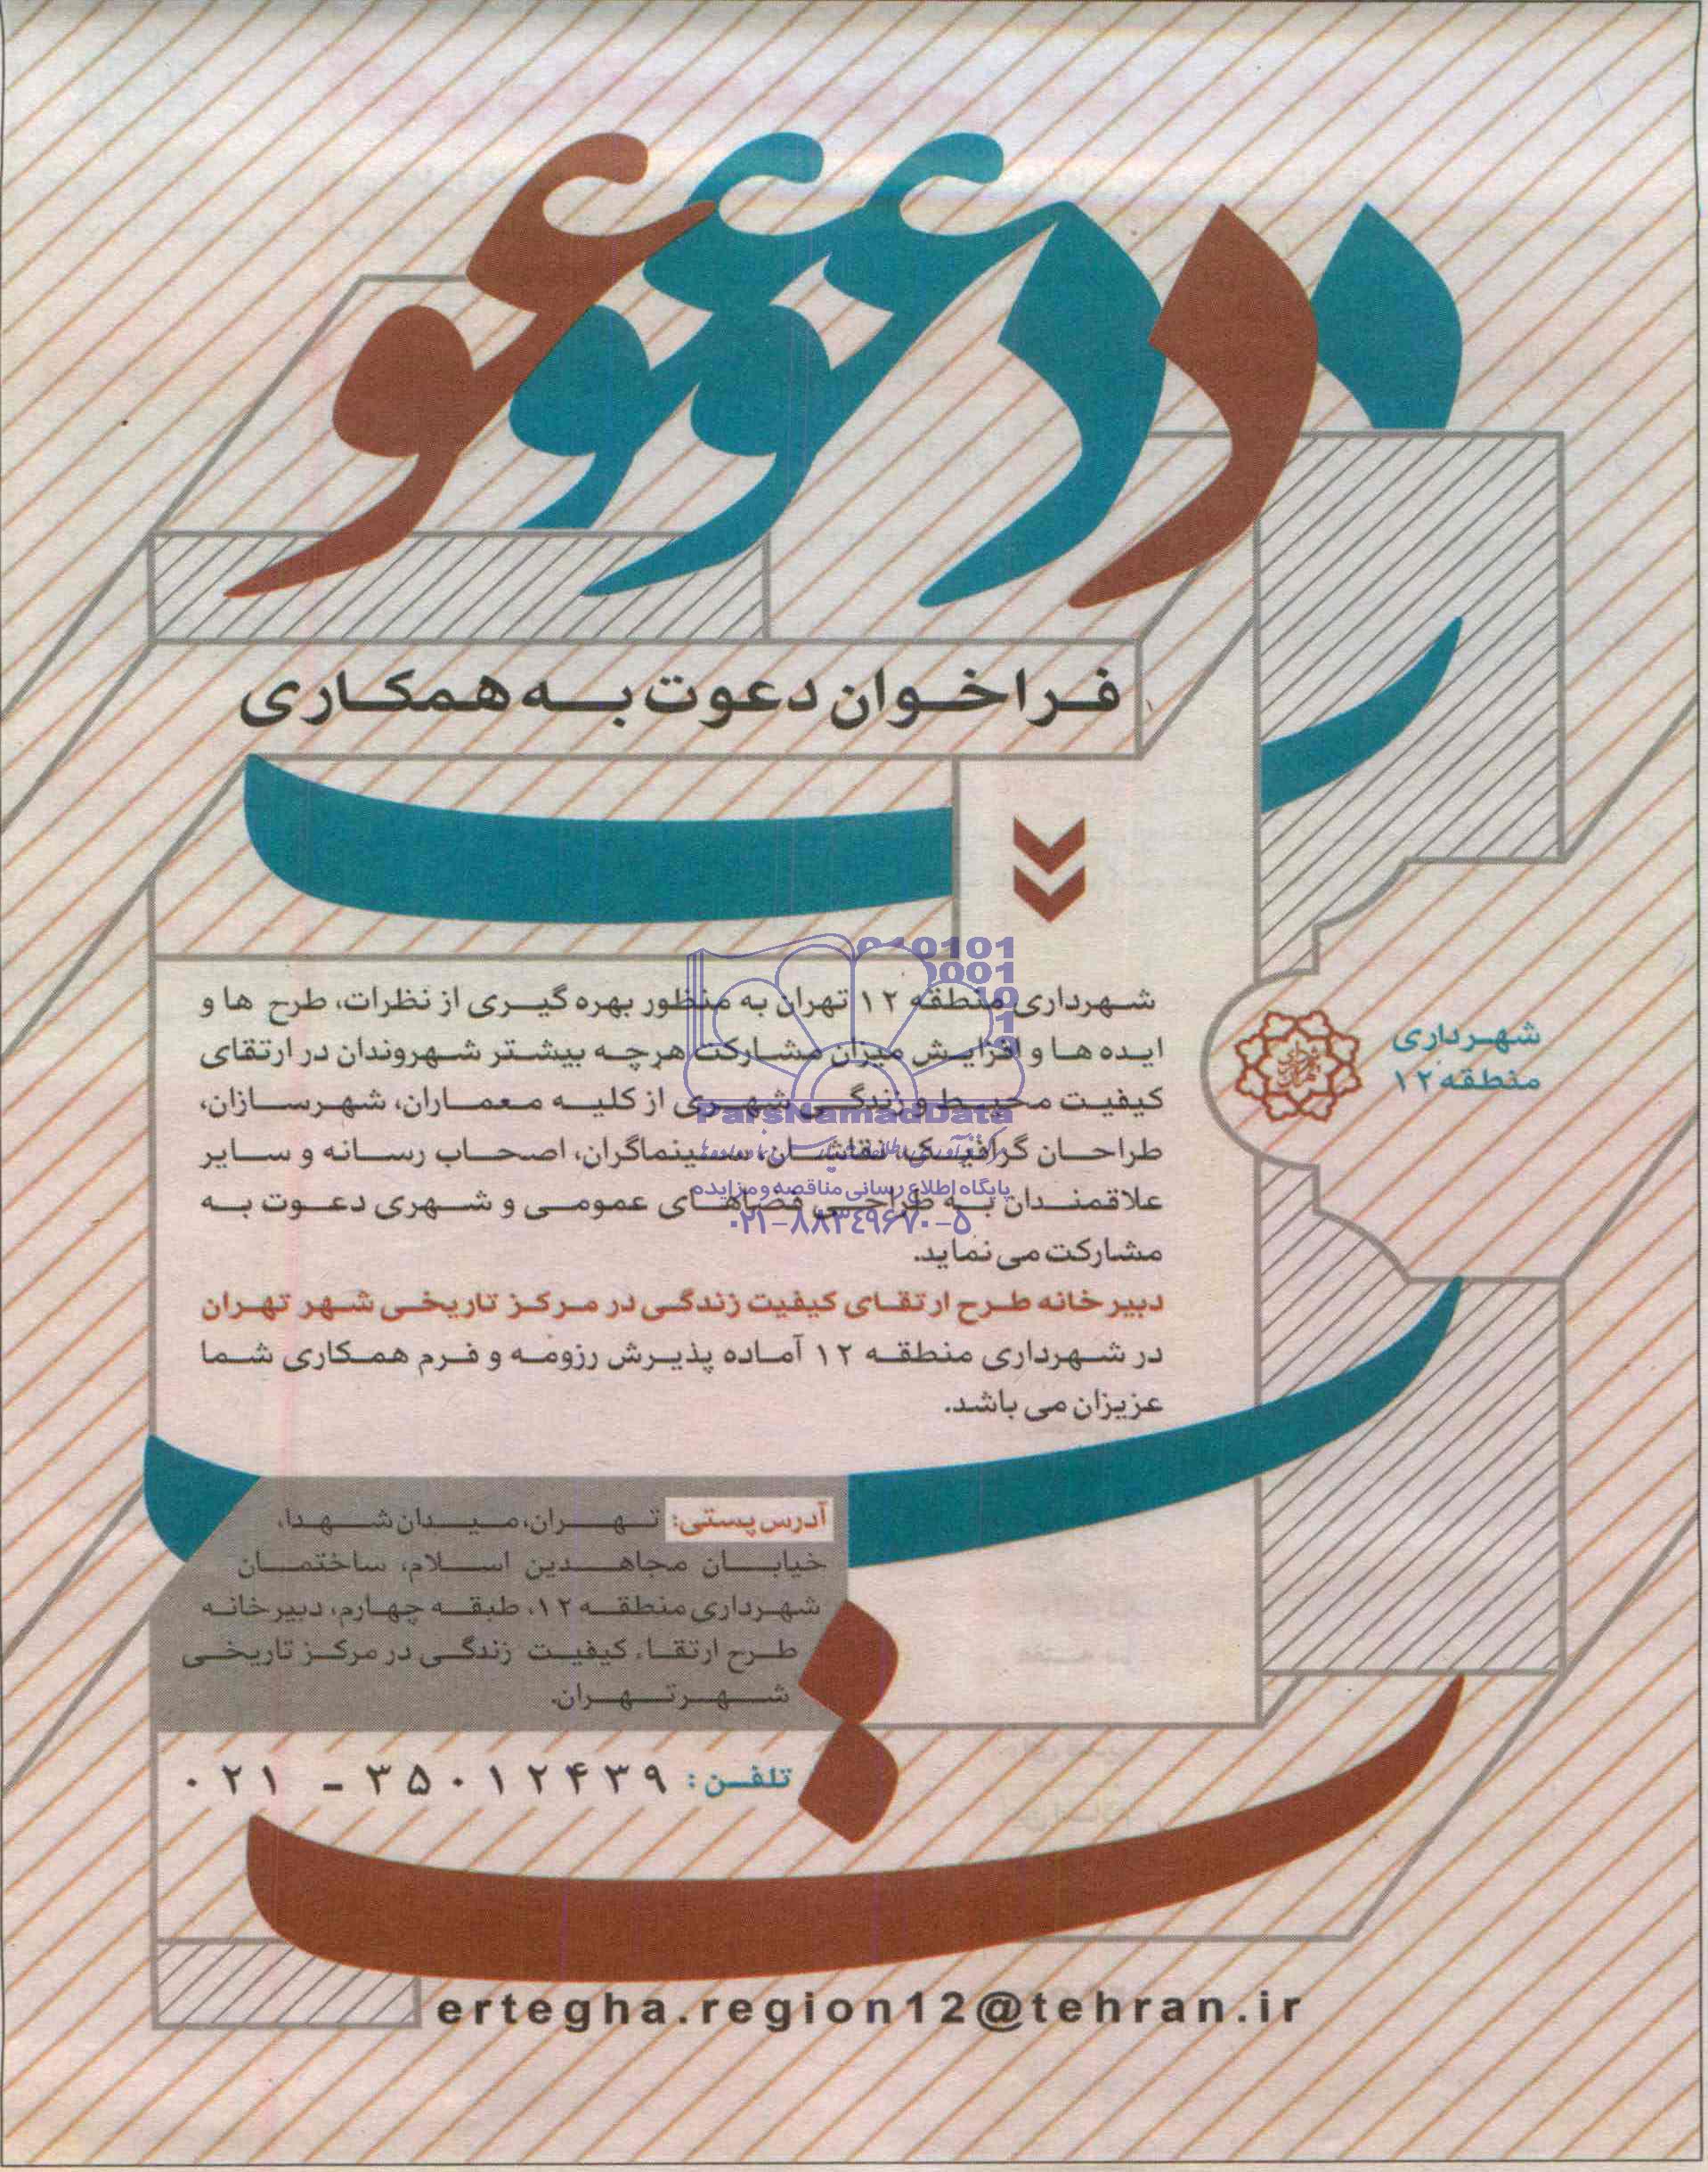 دعوت
فراخوان دعوت به همکاری
شهرداری منطقه ۱۲ تهران به منظور بهره گیری از نظرات، طرح ها و
ایده ها و افزایش میزان مشارکت هرچه بیشتر شهروندان در ارتقای
کیفیت محیط و زندگی شهری از کلیه معماران، شهرسازان،
طراحان گرافیک، نقاشان، سینماگران، اصحاب رسانه و سایر
علاقمندان به طراحی فضاهای عمومی و شهری دعوت به
مشارکت می نماید.
دبیرخانه طرح ارتقای کیفیت زندگی در مرکز تاریخی شهر تهران
در شهرداری منطقه ۱۲ آماده پذیرش رزومه و فرم همکاری شما
عزیزان می باشد.
شهرداری
منطقه ۱۲
آدرس پستی: تهران، میدان شهدا،
خیابان مجاهدین اسلام، ساختمان
شهرداری منطقه ۱۲، طبقه چهارم، دبیرخانه
طرح ارتقاء کیفیت زندگی در مرکز تاریخی
شهر تهران.
تلفن: ۳۵۰۱۲۴۳۹ - ۰۲۱
ertegha.region12@tehran.ir
ParsNamadData
پایگاه اطلاع رسانی مناقصه و مزایده
۰۲۱-۸۸۳۴۹۶۷۰-۵